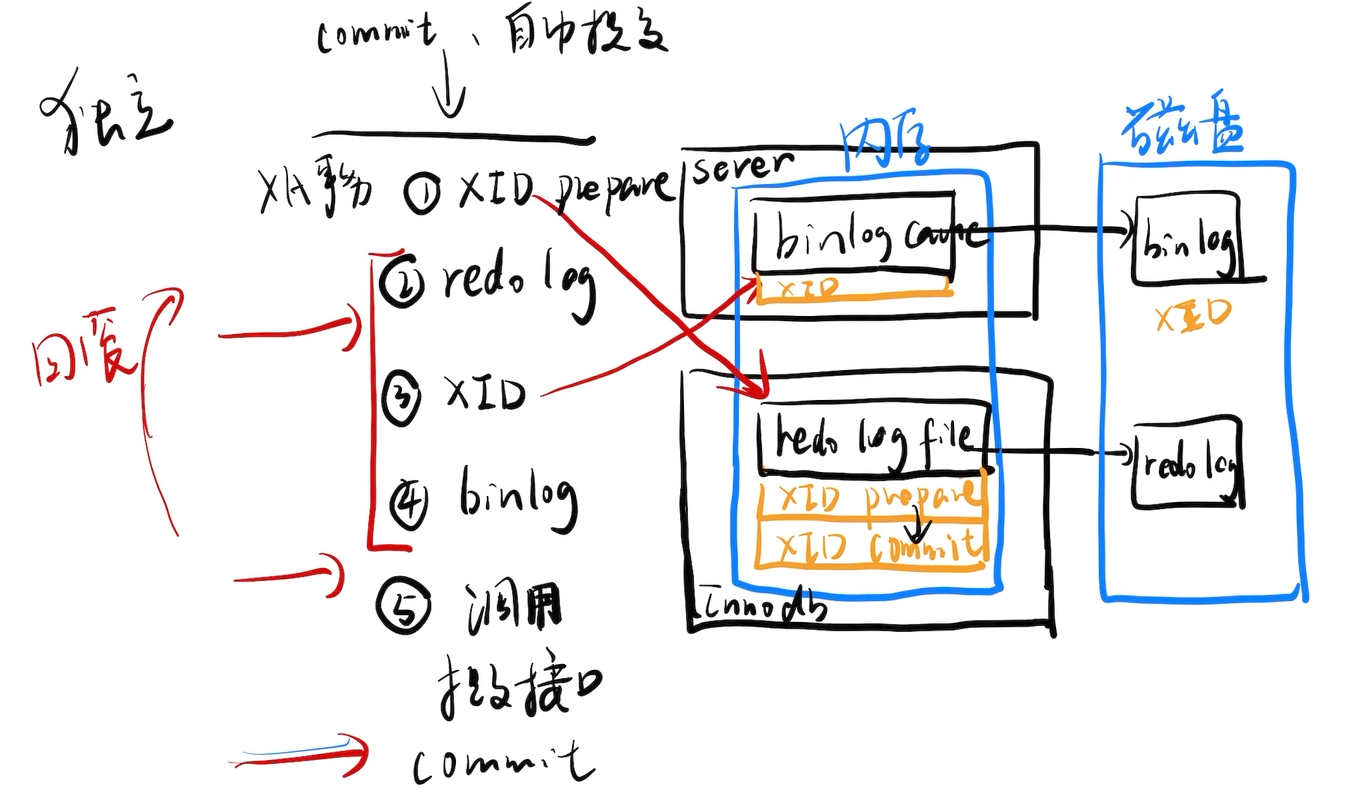 commit、自动提交
独立
XA事务 ① XID prepare
② redo log
③ XID
④ binlog
⑤ 调用
提交接口
commit
回滚
内存
server
binlog cache
XID
redo log file
XID prepare
XID commit
Innodb
磁盘
binlog
XID
redo log